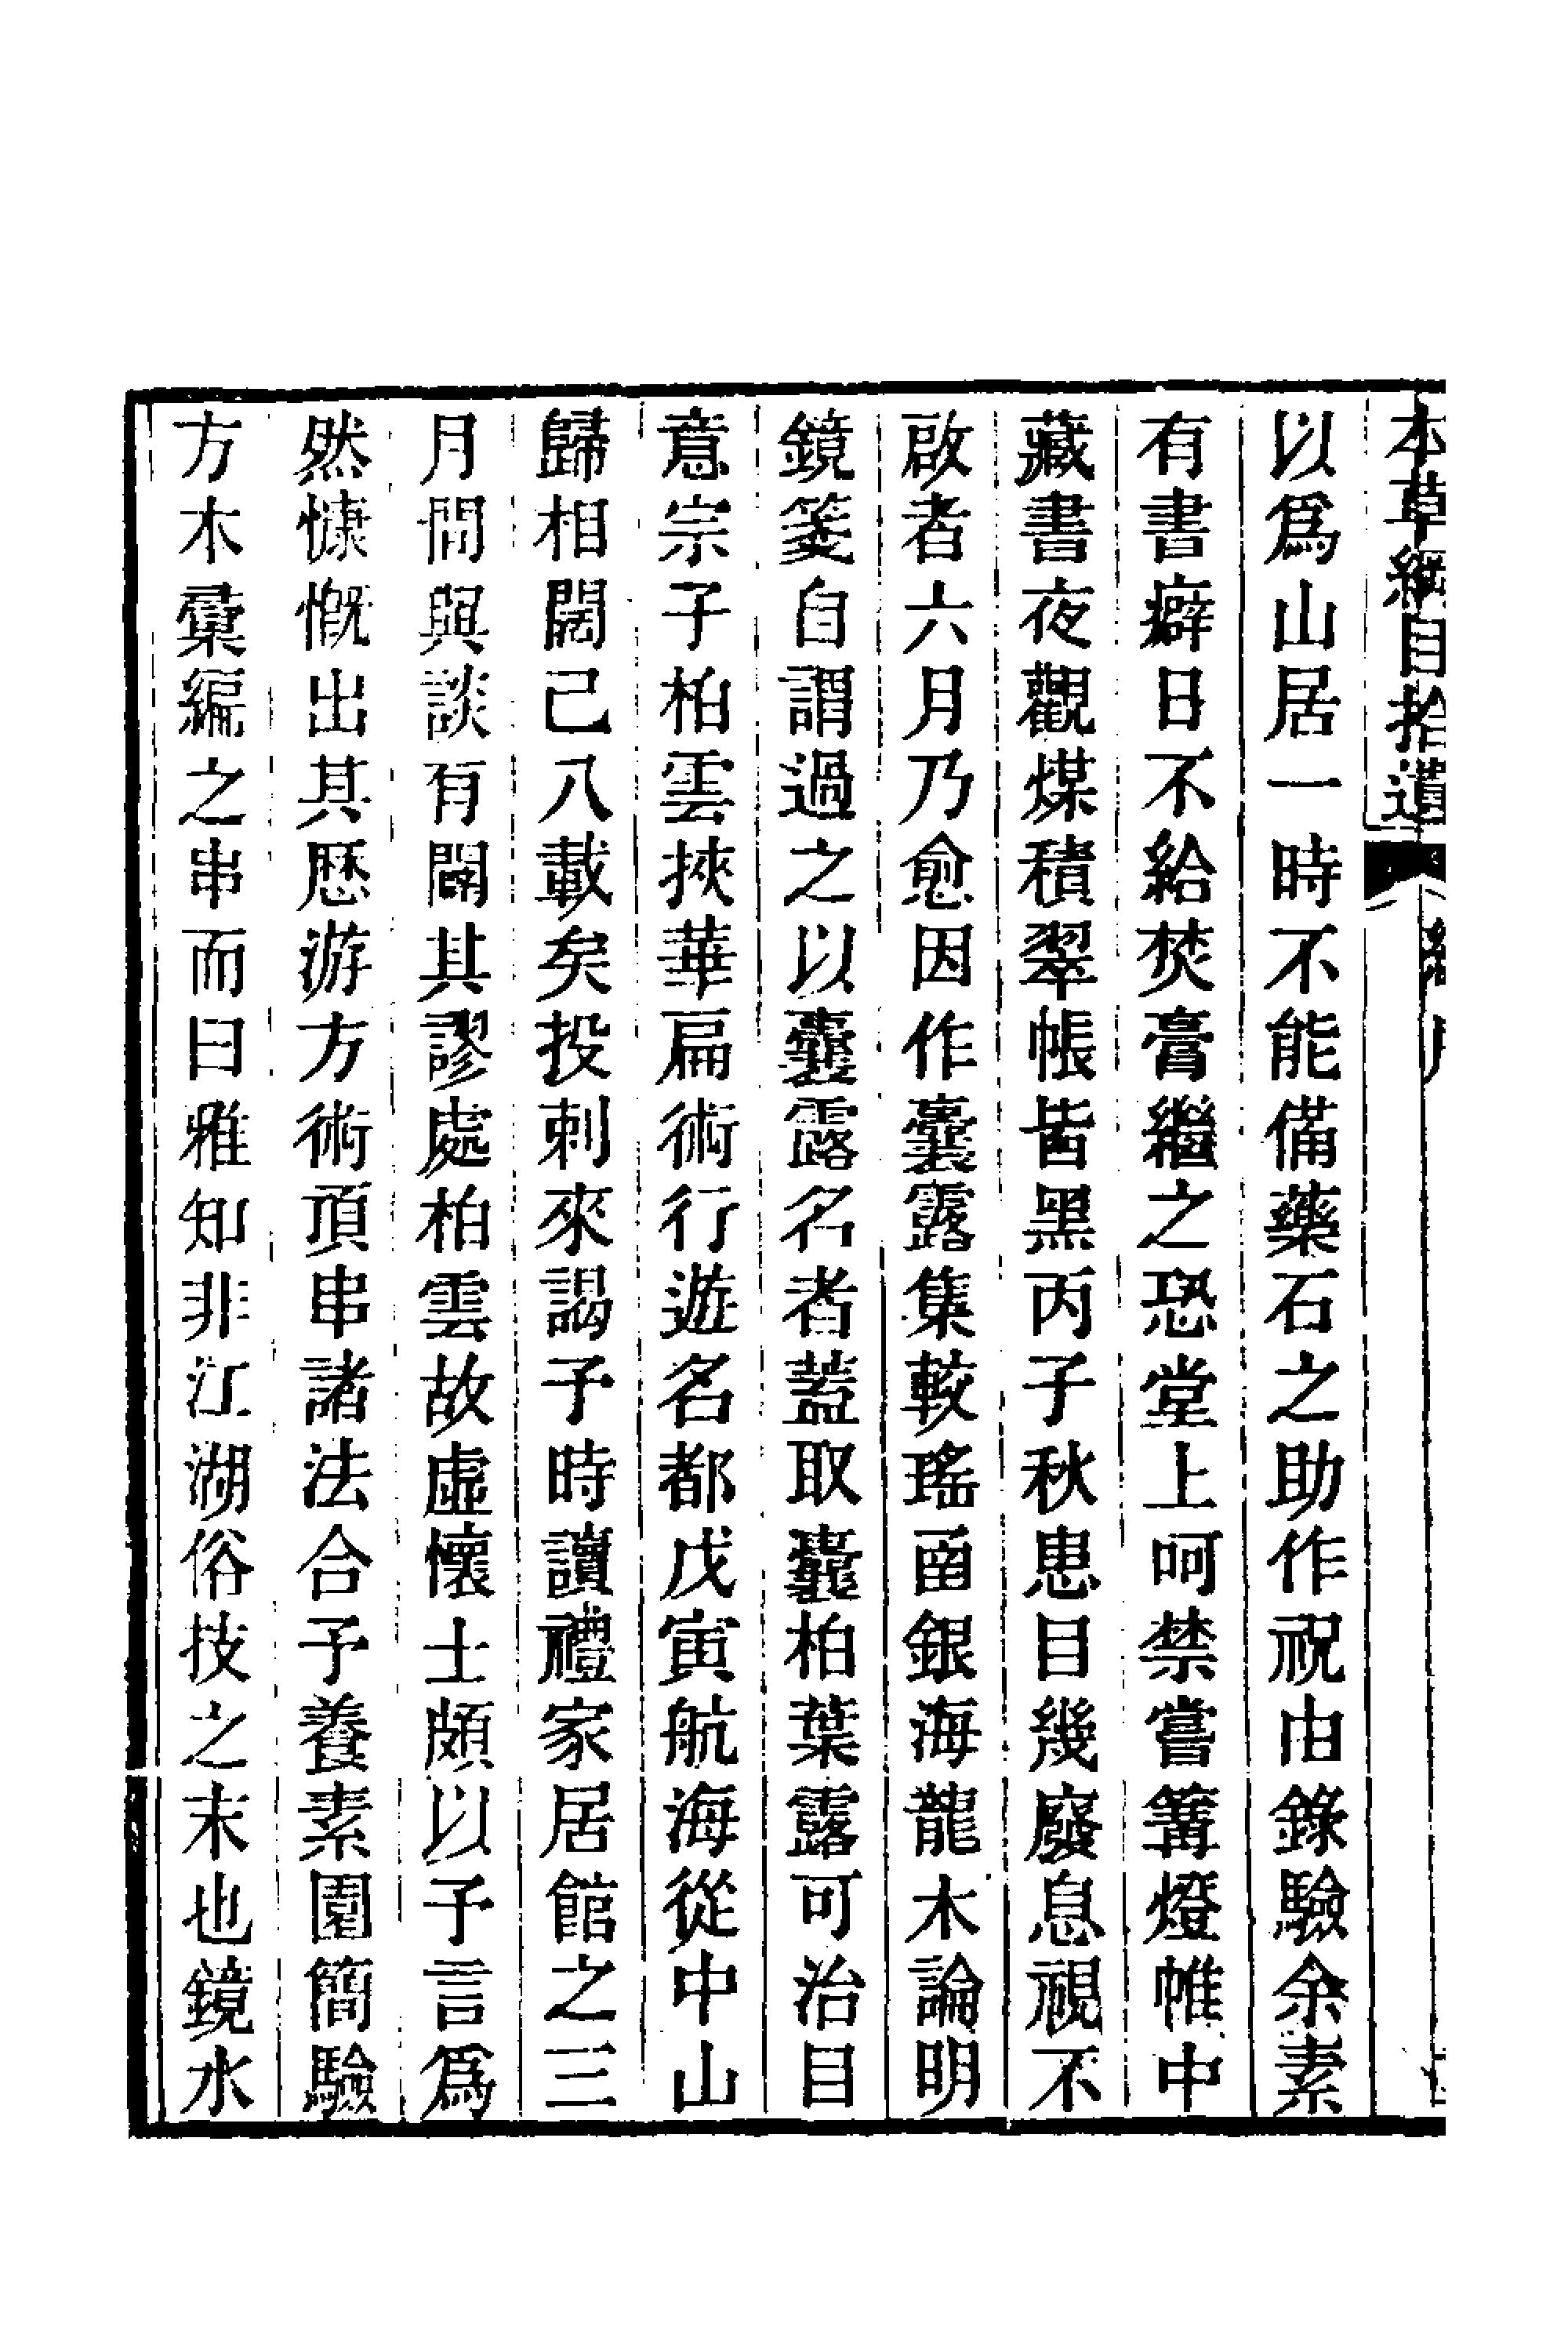 本草綱目拾遺
以爲山居一時不能備藥石之助作祝由錄驗余素
有書癖日不給焚膏繼之恐堂上呵禁嘗篝燈帷中
藏書夜觀煤積翠帳皆黑丙子秋患目幾廢息視不
啟者六月乃愈因作囊露集較瑤函銀海龍木論明
鏡箋自謂過之以囊露名者蓋取囊柏葉露可治目
意宗子柏雲挾華扁術行遊名都戊寅航海從中山
歸相闊己八載矣投刺來謁予時讀禮家居館之三
月間與談有闢其謬處柏雲故虛懷士頗以予言爲
然慷慨出其歷游方術頂串諸法合予養素園簡驗
方木彙編之串而曰雅知非江湖俗技之末也鏡水